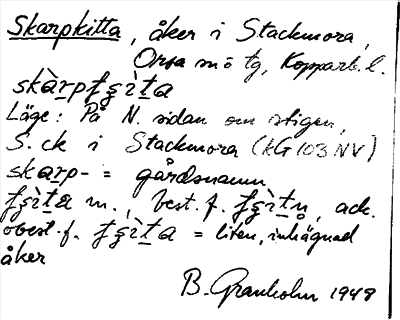 Skarpkitta, åker i Stackmora,
Orsa sn ö tg, Kopparb. l.
skàrpʈʂìta
Läge: På N. sidan om stigen,
S.ck i Stackmora (kG 103 NV)
skarp- = gårdsnamn
ʈʂìta m., best. f. ʈʂìtn̥, ack.
obest. f. ʈʂìta = liten, inhägnad
åker
B. Granholm 1948